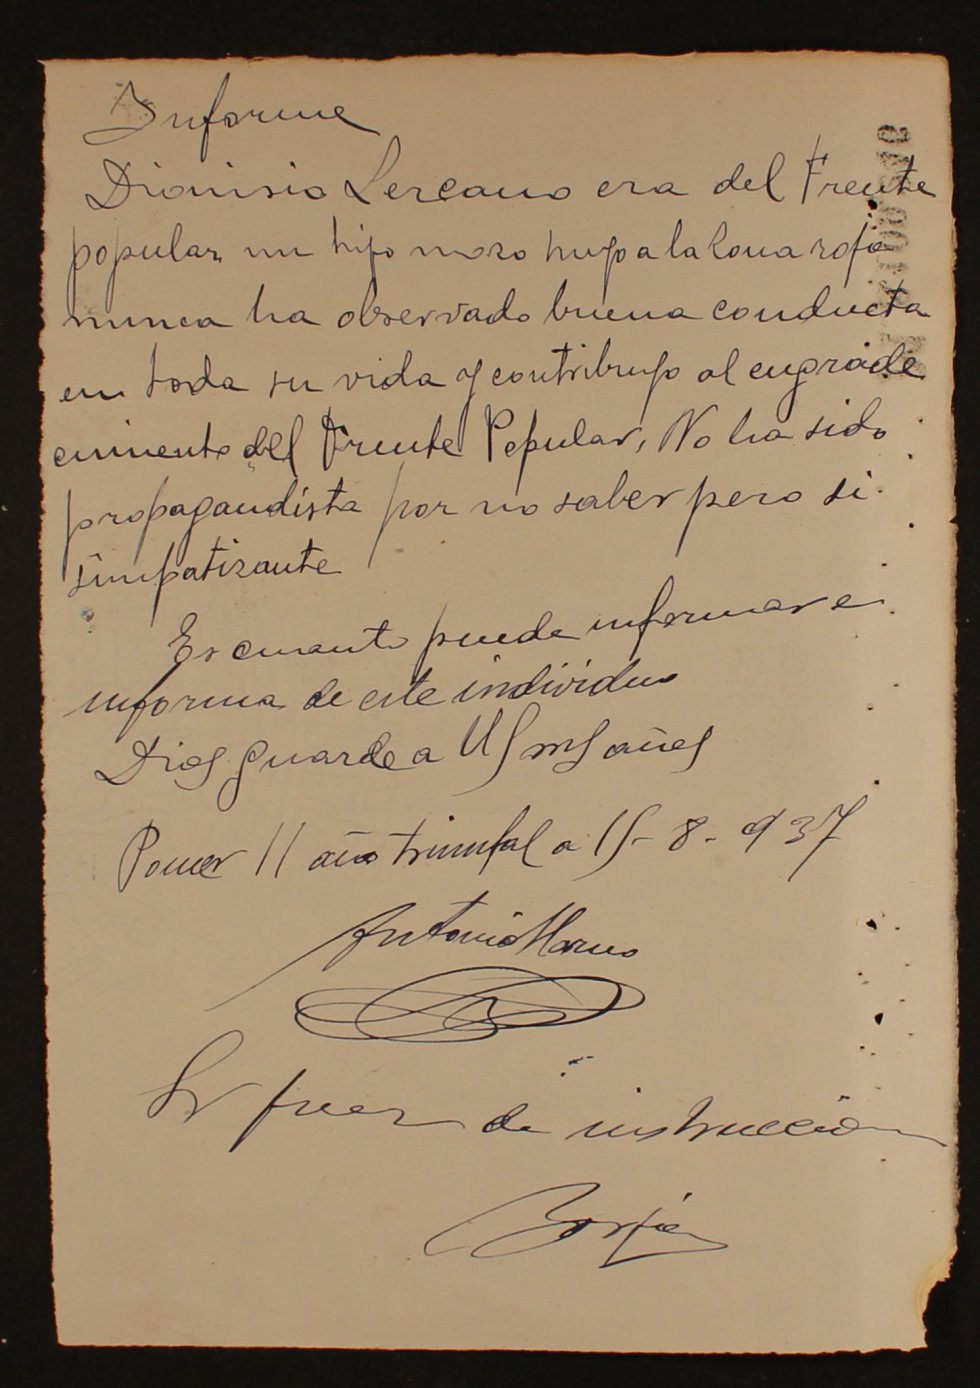 Informe
Dionisio Lercano era del Frente
popular, un hijo mozo huyo a la Zona roja
nunca ha observado buena conducta
en toda su vida y contribuyo al engrade
cimiento del Frente Popular, No ha sido
propagandista por no saber pero si
simpatizante
Es cuanto puede informar e
informa de este individuo
Dios guarde a US ms años
Pomer II año triunfal a 15-8-937
Antonio
Sr Juez de instrucción
Borja